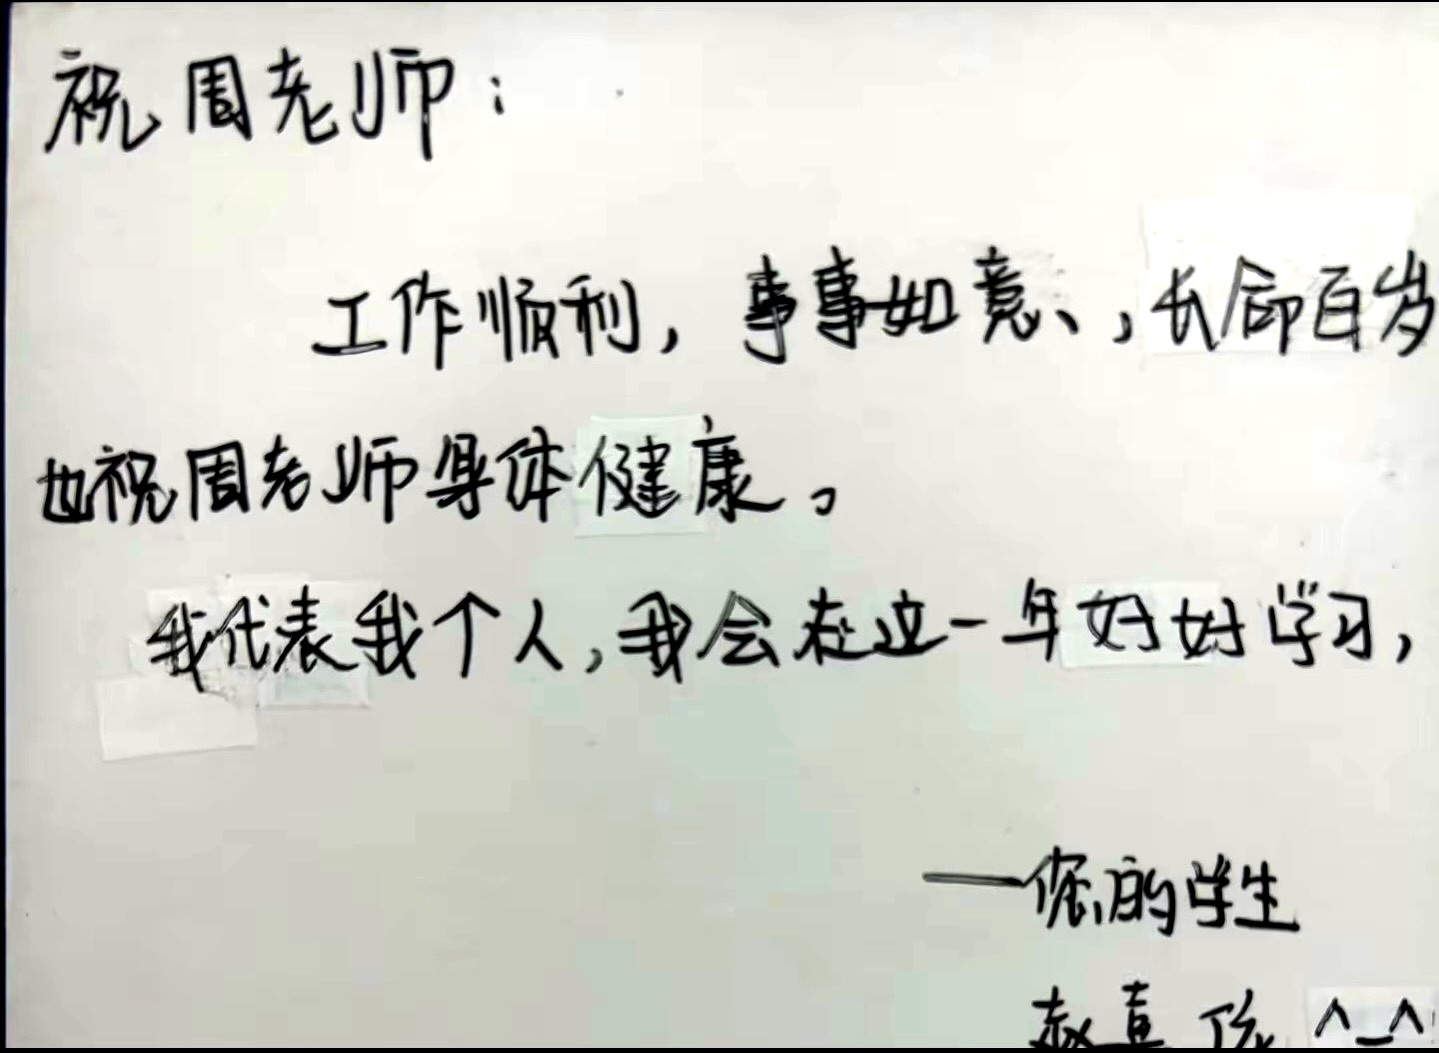 祝周老师:
工作顺利，事事如意、，长命百岁
也祝周老师身体健康。
我代表我个人，我会在这一年好好学习，
——您的学生
赵 ^_^